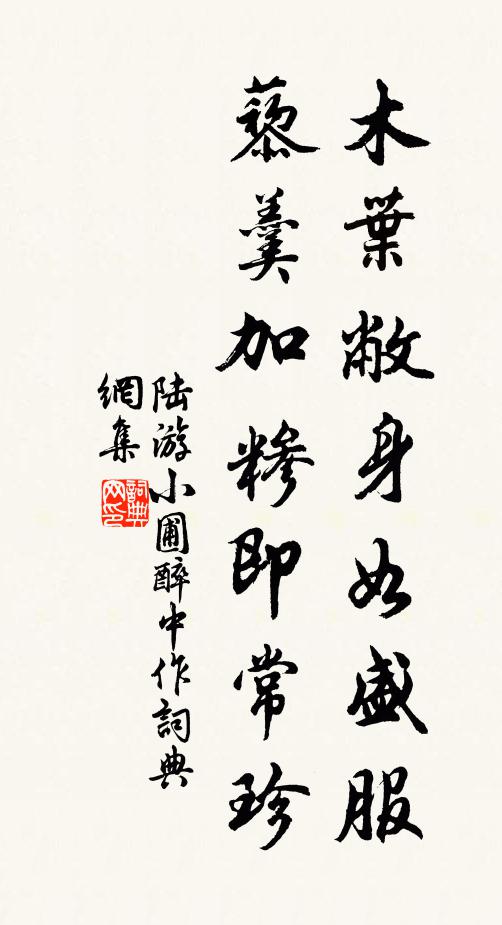 木葉敝身如盛服
藜羹加糝即常珍
陸游小圃醉中作詞典
網集
詞典
网印